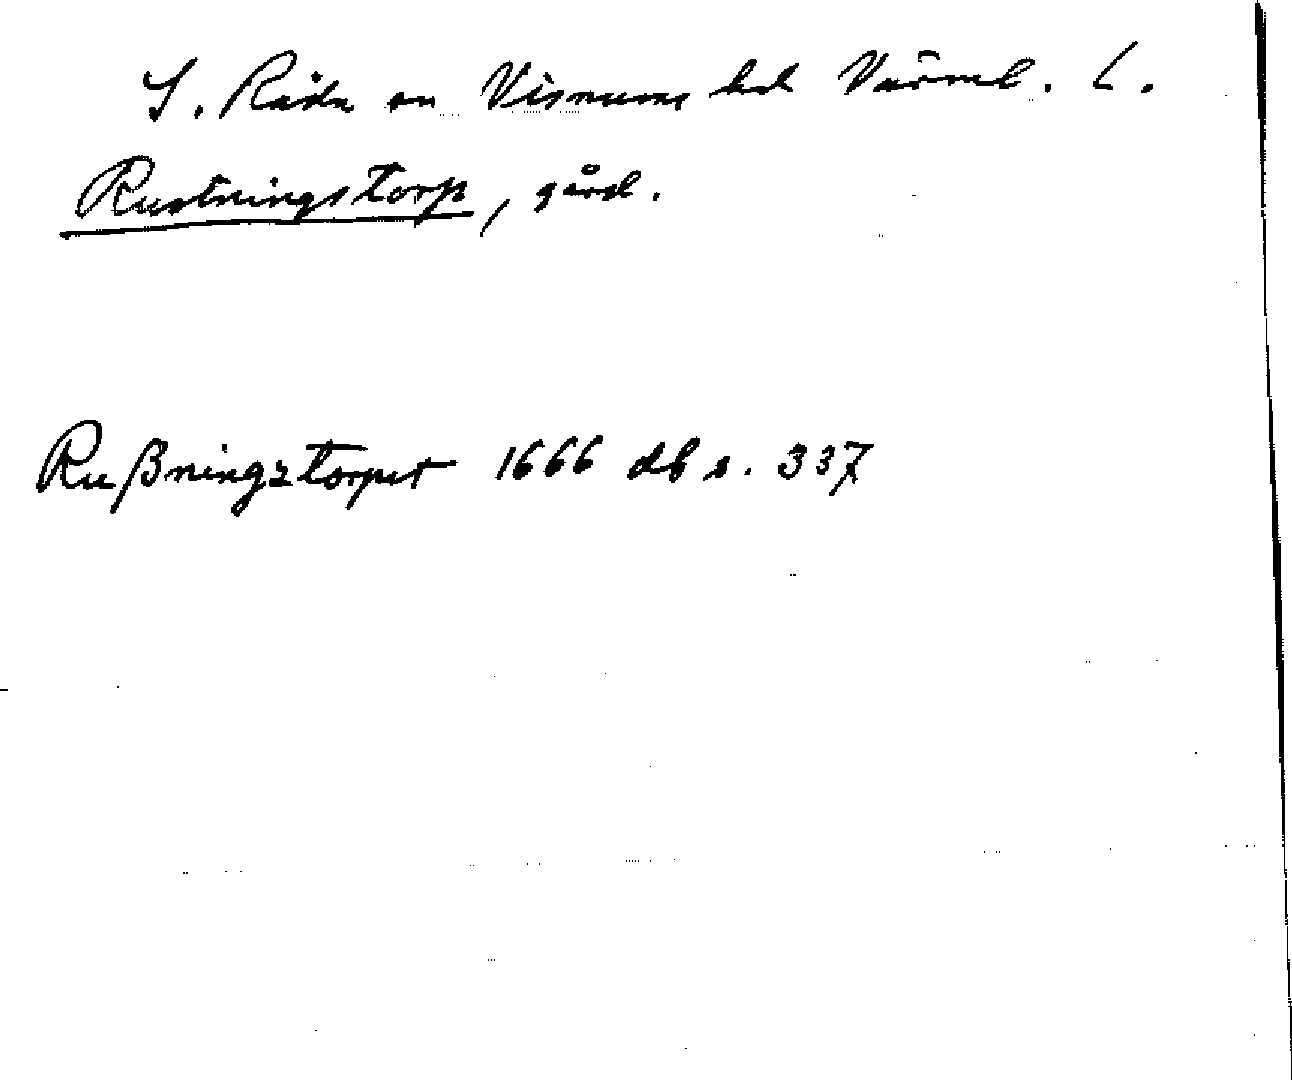 S. Råda sn Visnums hd Värml. l.
Rustningstorp, gård.
Rußningztorpet 1666 db s. 337